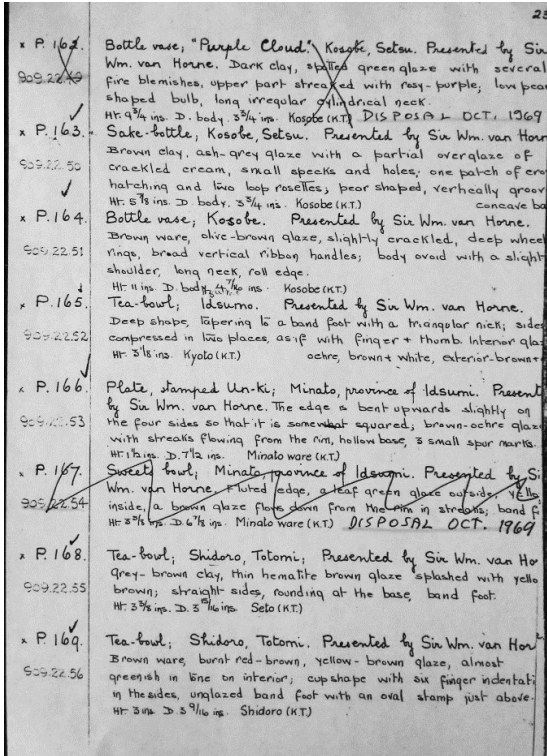 23
x P. 162. Bottle vase; "Purple Cloud". Kosobe, Setsu. Presented by Sir
Wm. van Horne. Dark clay, spotted green glaze with several
909.22.49 fire blemishes, upper part streaked with rosy-purple; low pear
shaped bulb, long irregular cylindrical neck.
Ht. 9 3/4 ins. D. body. 3 3/4 ins. Kosobe (K.T.) DISPOSAL OCT. 1969
x P. 163. Sake-bottle; Kosobe, Setsu. Presented by Sir Wm. van Horn
Brown clay, ash-grey glaze with a partial overglaze of
909.22.50 crackled cream, small specks and holes; one patch of cro
hatching and two loop rosettes; pear shaped, vertically groov
Ht. 5 7/8 ins. D. body. 3 3/4 ins. Kosobe (K.T.) concave ba
x P. 164. Bottle vase; Kosobe. Presented by Sir Wm. van Horne.
Brown ware, olive-brown glaze, slightly crackled, deep wheel
909.22.51 rings, broad vertical ribbon handles; body ovoid with a slight
shoulder, long neck, roll edge.
Ht. 11 ins. D. body. 4 7/16 ins. Kosobe (K.T.)
x P. 165. Tea-bowl; Idsumo. Presented by Sir Wm. van Horne.
Deep shape, tapering to a band foot with a triangular nick; sides
909.22.52 compressed in two places, as if with finger + thumb. Interior gla
Ht. 3 1/8 ins. Kyoto (K.T.) ochre, brown + white, exterior-brown +
x P. 166. Plate, stamped Un-ki; Minato, province of Idsumi. Present
by Sir Wm. van Horne. The edge is bent upwards slightly on
909.22.53 the four sides so that it is somewhat squared; brown-ochre glaz
with streaks flowing from the rim, hollow base, 3 small spur marks.
Ht. 1 1/2 ins. D. 7 1/2 ins. Minato ware (K.T.)
x P. 167. Sweets bowl; Minato, province of Idsumi. Presented by Si
909.22.54 Wm. van Horne. Fluted edge, a leaf green glaze outside, yello
inside, a brown glaze flows down from the rim in streaks; band f
Ht. 3 ins. D. 6 7/8 ins. Minato ware (K.T.) DISPOSAL OCT. 1969
x P. 168. Tea-bowl; Shidoro, Totomi; Presented by Sir Wm. van Ho
grey-brown clay, thin hematite brown glaze splashed with yello
909.22.55 brown; straight sides, rounding at the base, band foot.
Ht. 3 3/8 ins. D. 3 15/16 ins. Seto (K.T.)
x P. 169. Tea-bowl; Shidoro, Totomi. Presented by Sir Wm. van Hor
Brown ware, burnt red-brown, yellow-brown glaze, almost
909.22.56 greenish in tone on interior; cup shape with six finger indentati
in the sides, unglazed band foot with an oval stamp just above.
Ht. 3 ins. D. 3 9/16 ins. Shidoro (K.T.)